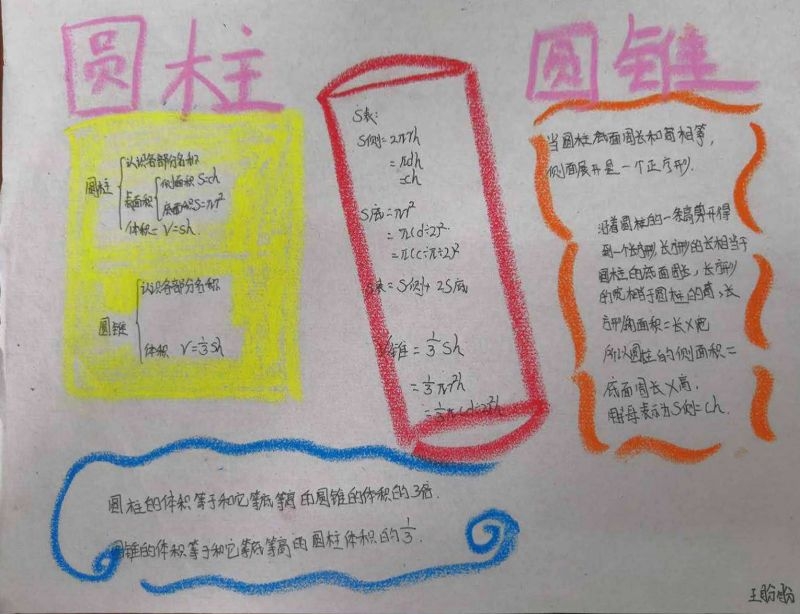 圆柱
圆锥
圆柱
认识各部分名称
表面积
侧面积 S=ch
底面积S=πr²
体积= V=sh
圆锥
认识各部分名称
体积 V=⅓Sh
S表:
S侧=2πrh
=πdh
=ch
S底=πr²
=π(d÷2)²
=π(c÷π÷2)²
S表=S侧+2S底
V锥=⅓Sh
=⅓πr²h
=⅓π(d÷2)²h
当圆柱底面周长和高相等,
侧面展开是一个正方形.
沿着圆柱的一条高剪开得
到一个长方形,长方形的长相当于
圆柱的底面周长,长方形
的宽相当于圆柱的高,长
方形的面积=长×宽
所以圆柱的侧面积=
底面周长×高.
用字母表示为S侧=Ch.
圆柱的体积等于和它等底等高的圆锥的体积的3倍.
圆锥的体积等于和它等底等高的圆柱体积的⅓.
王盼盼